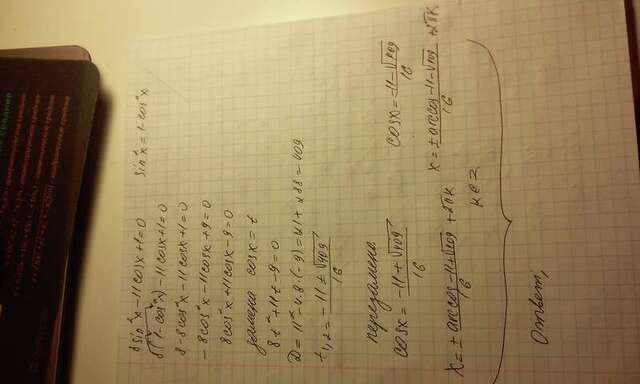 8sin²x-11cosx+1=0
sin²x=1-cos²x
8(1-cos²x)-11cosx+1=0
8-8cos²x-11cosx+1=0
-8cos²x-11cosx+9=0
8cos²x+11cosx-9=0
замена cosx=t
8t²+11t-9=0
D=11²-4·8·(-9)=121+288=409
t₁,₂=(-11±√409)/16
перезамена
cosx=(-11+√409)/16
cosx=(-11-√409)/16
x=±arccos(-11+√409)/16+2πk
x=±arccos(-11-√409)/16+2πk
k∈z
Ответ;